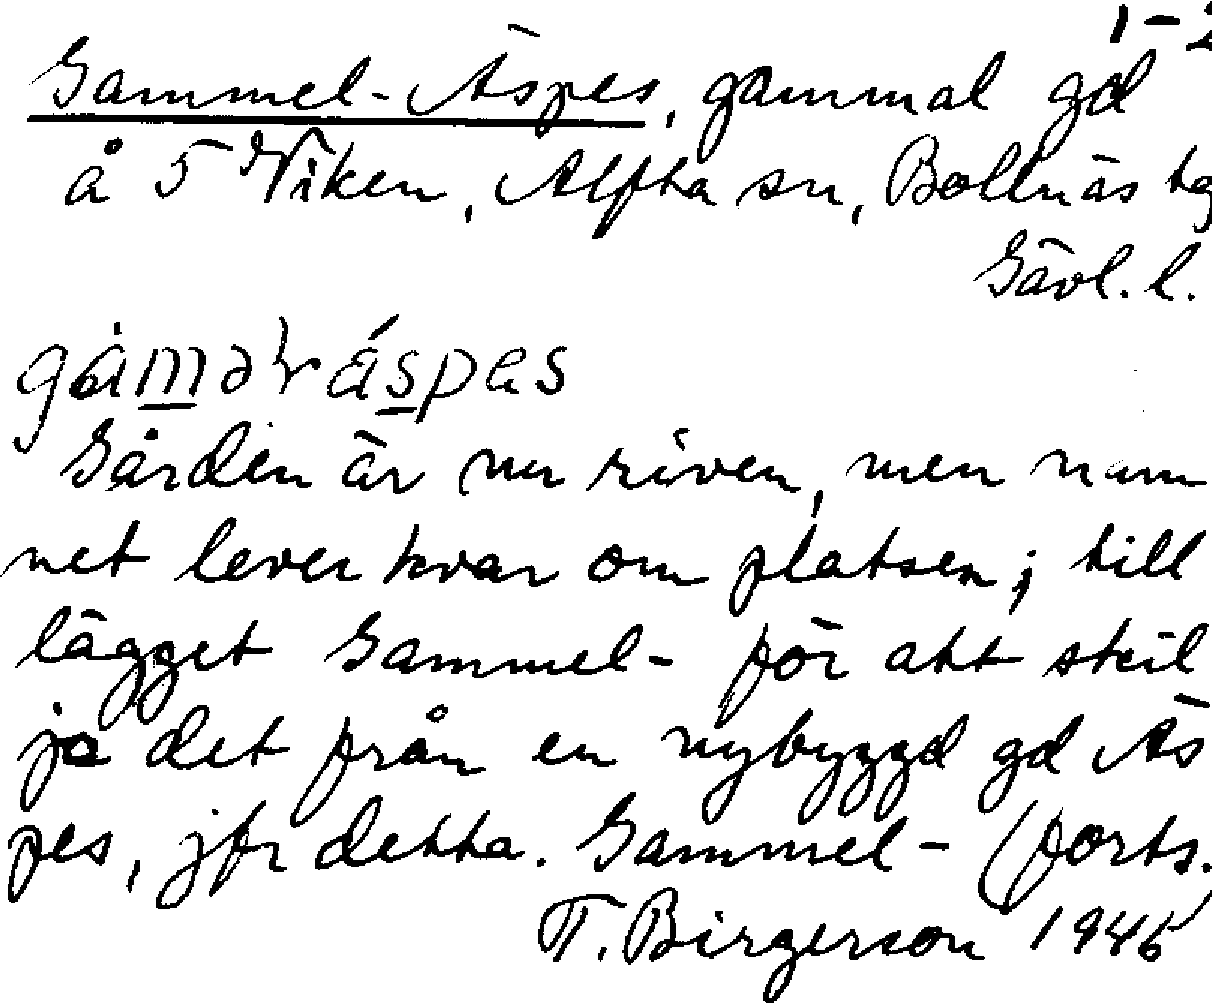 1-2
Gammel-Äspes, gammal gd
å 5 Viken, Alfta sn, Bollnäs tg
Gävl. l.
Gården är nu riven, men nam
net lever kvar om platsen; till
lägget Gammel- för att skil
ja det från en nybyggd gd Äs
pes, jfr detta. Gammel- (forts.)
T. Birgerson 1946